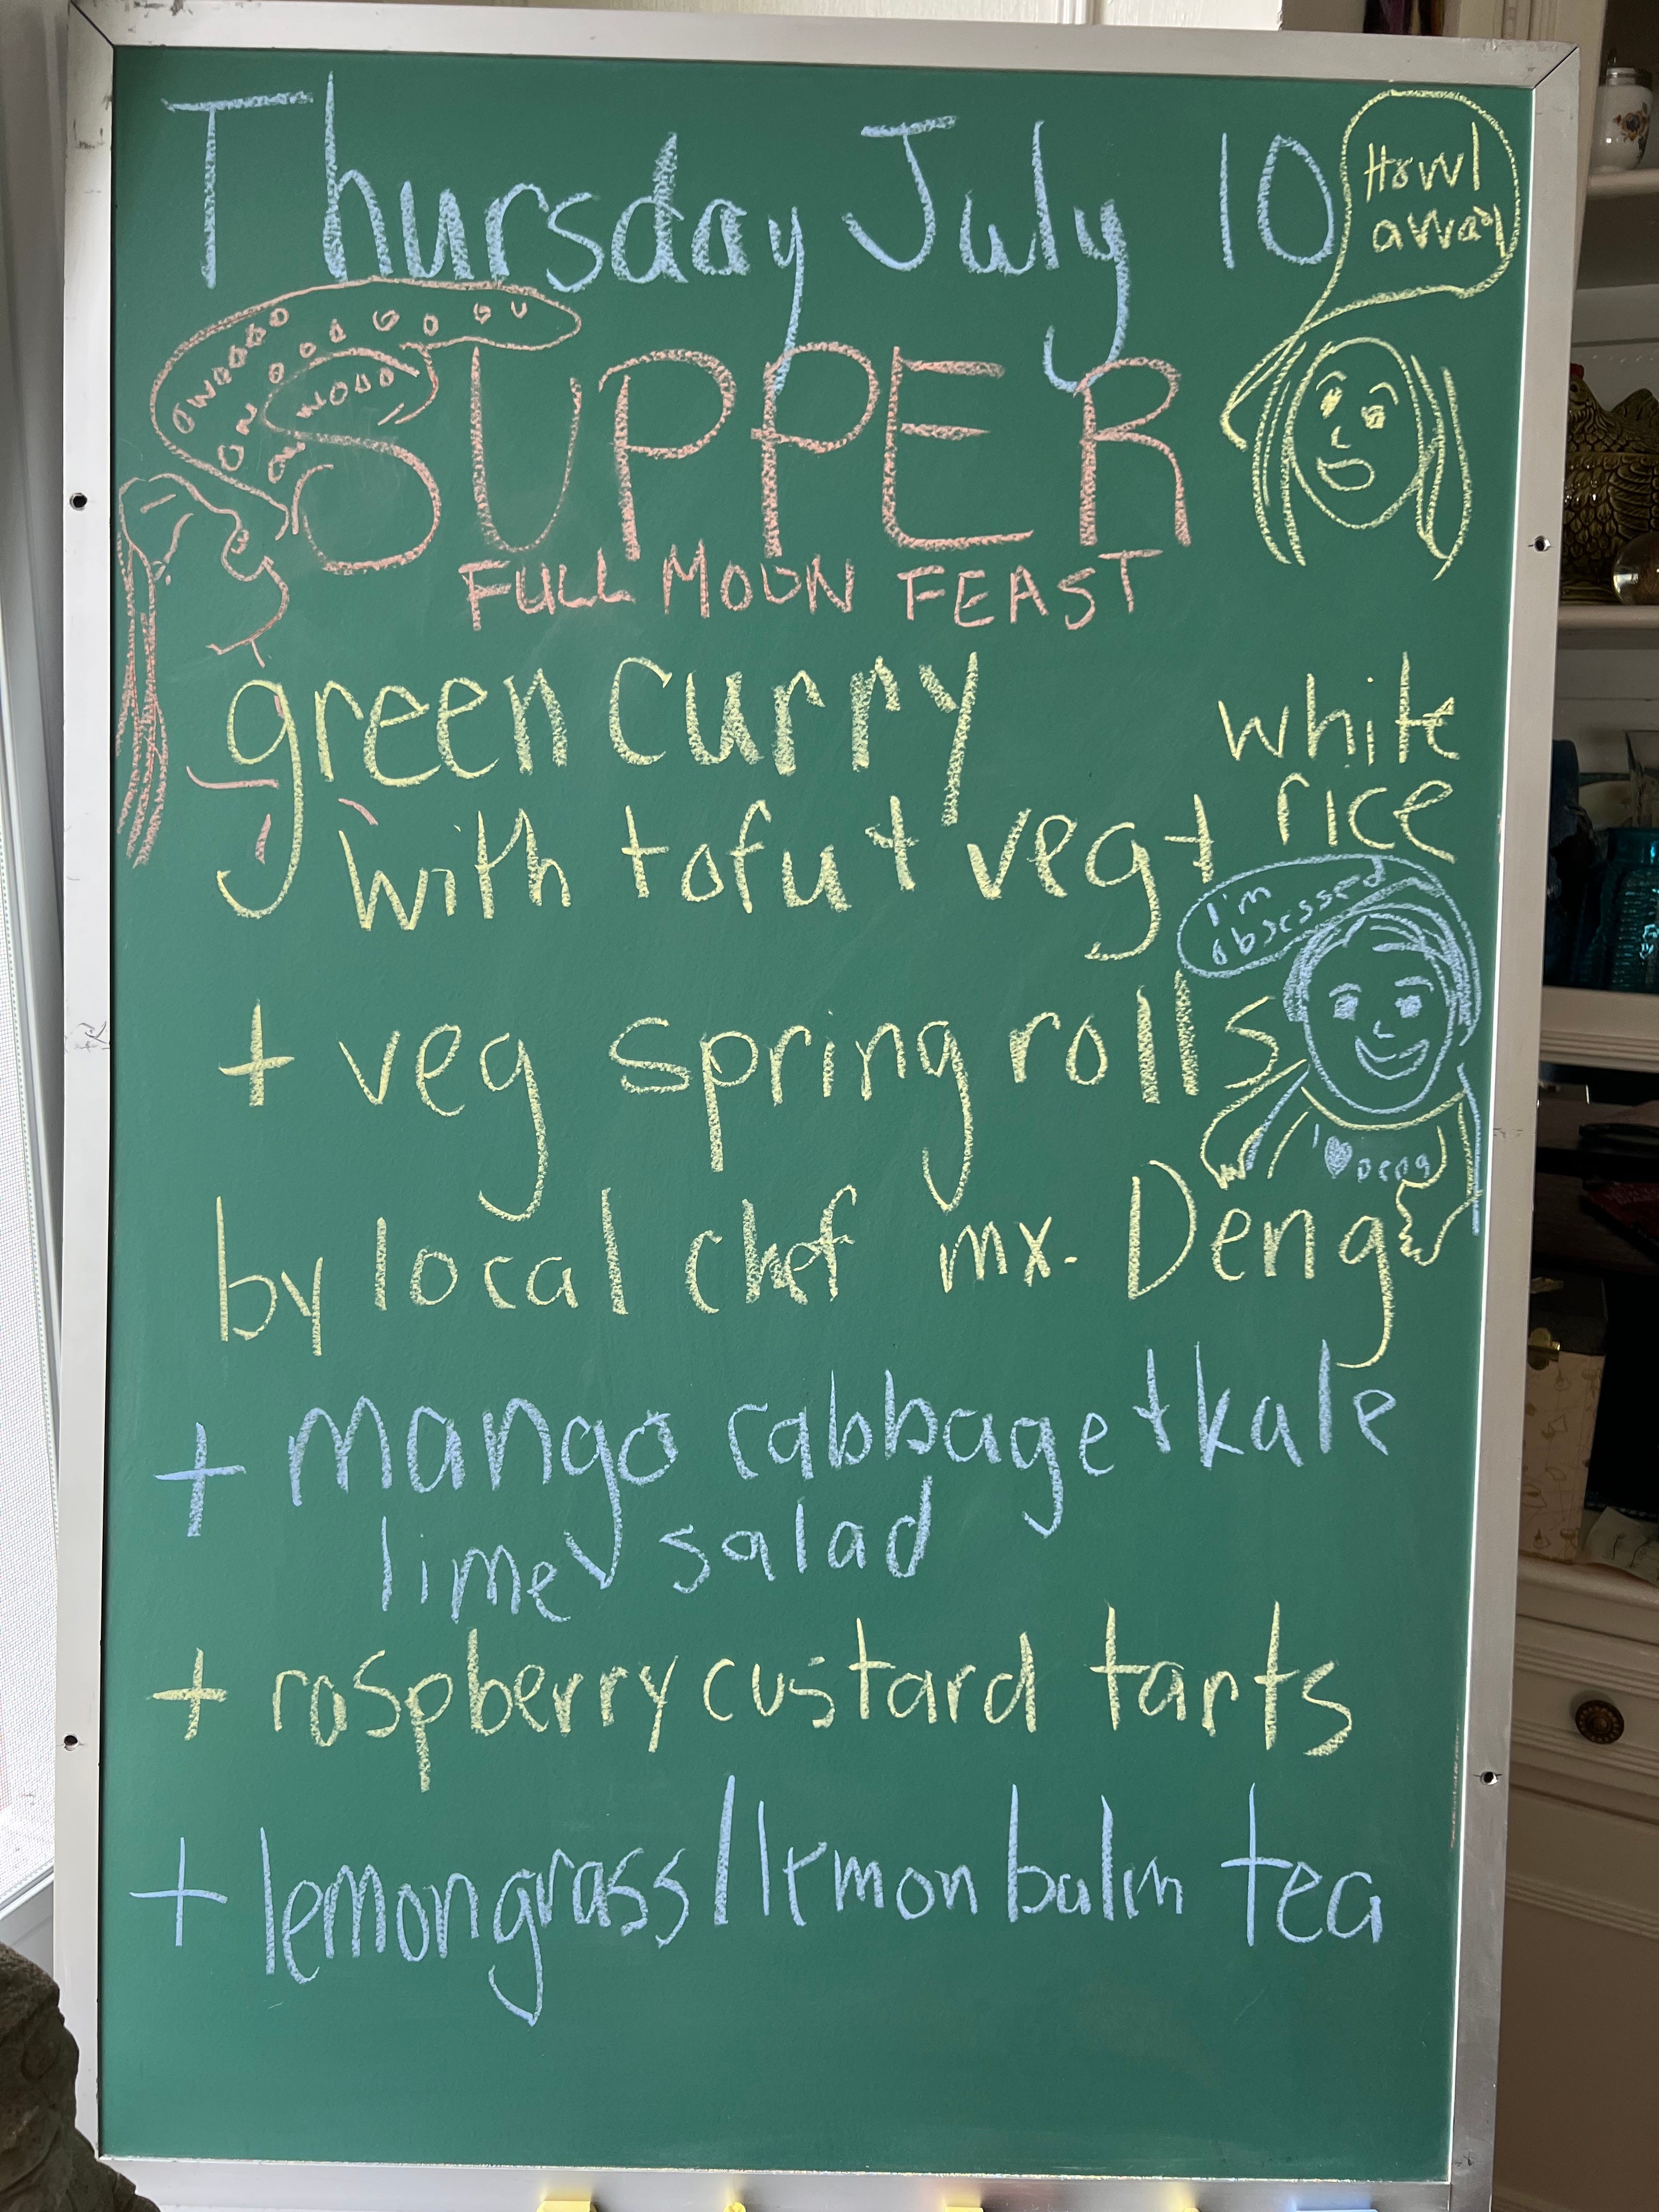 Thursday July 10
Howl
away
SUPPER
FULL MOON FEAST
green curry
white
rice
with tofu + veg +
I'm
obsessed
+ veg spring rolls
I ♥ Deng
by local chef mx. Deng
+ mango cabbage + kale
lime salad
+ raspberry custard tarts
+ lemongrass/lemonbalm tea